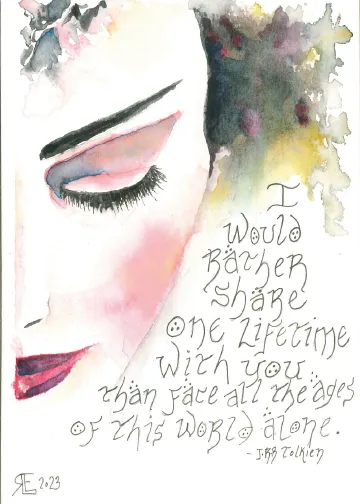 I
Would
Rather
Share
One Lifetime
With you
than face all the ages
of this world alone.
- J.RR Tolkien
RE 2023